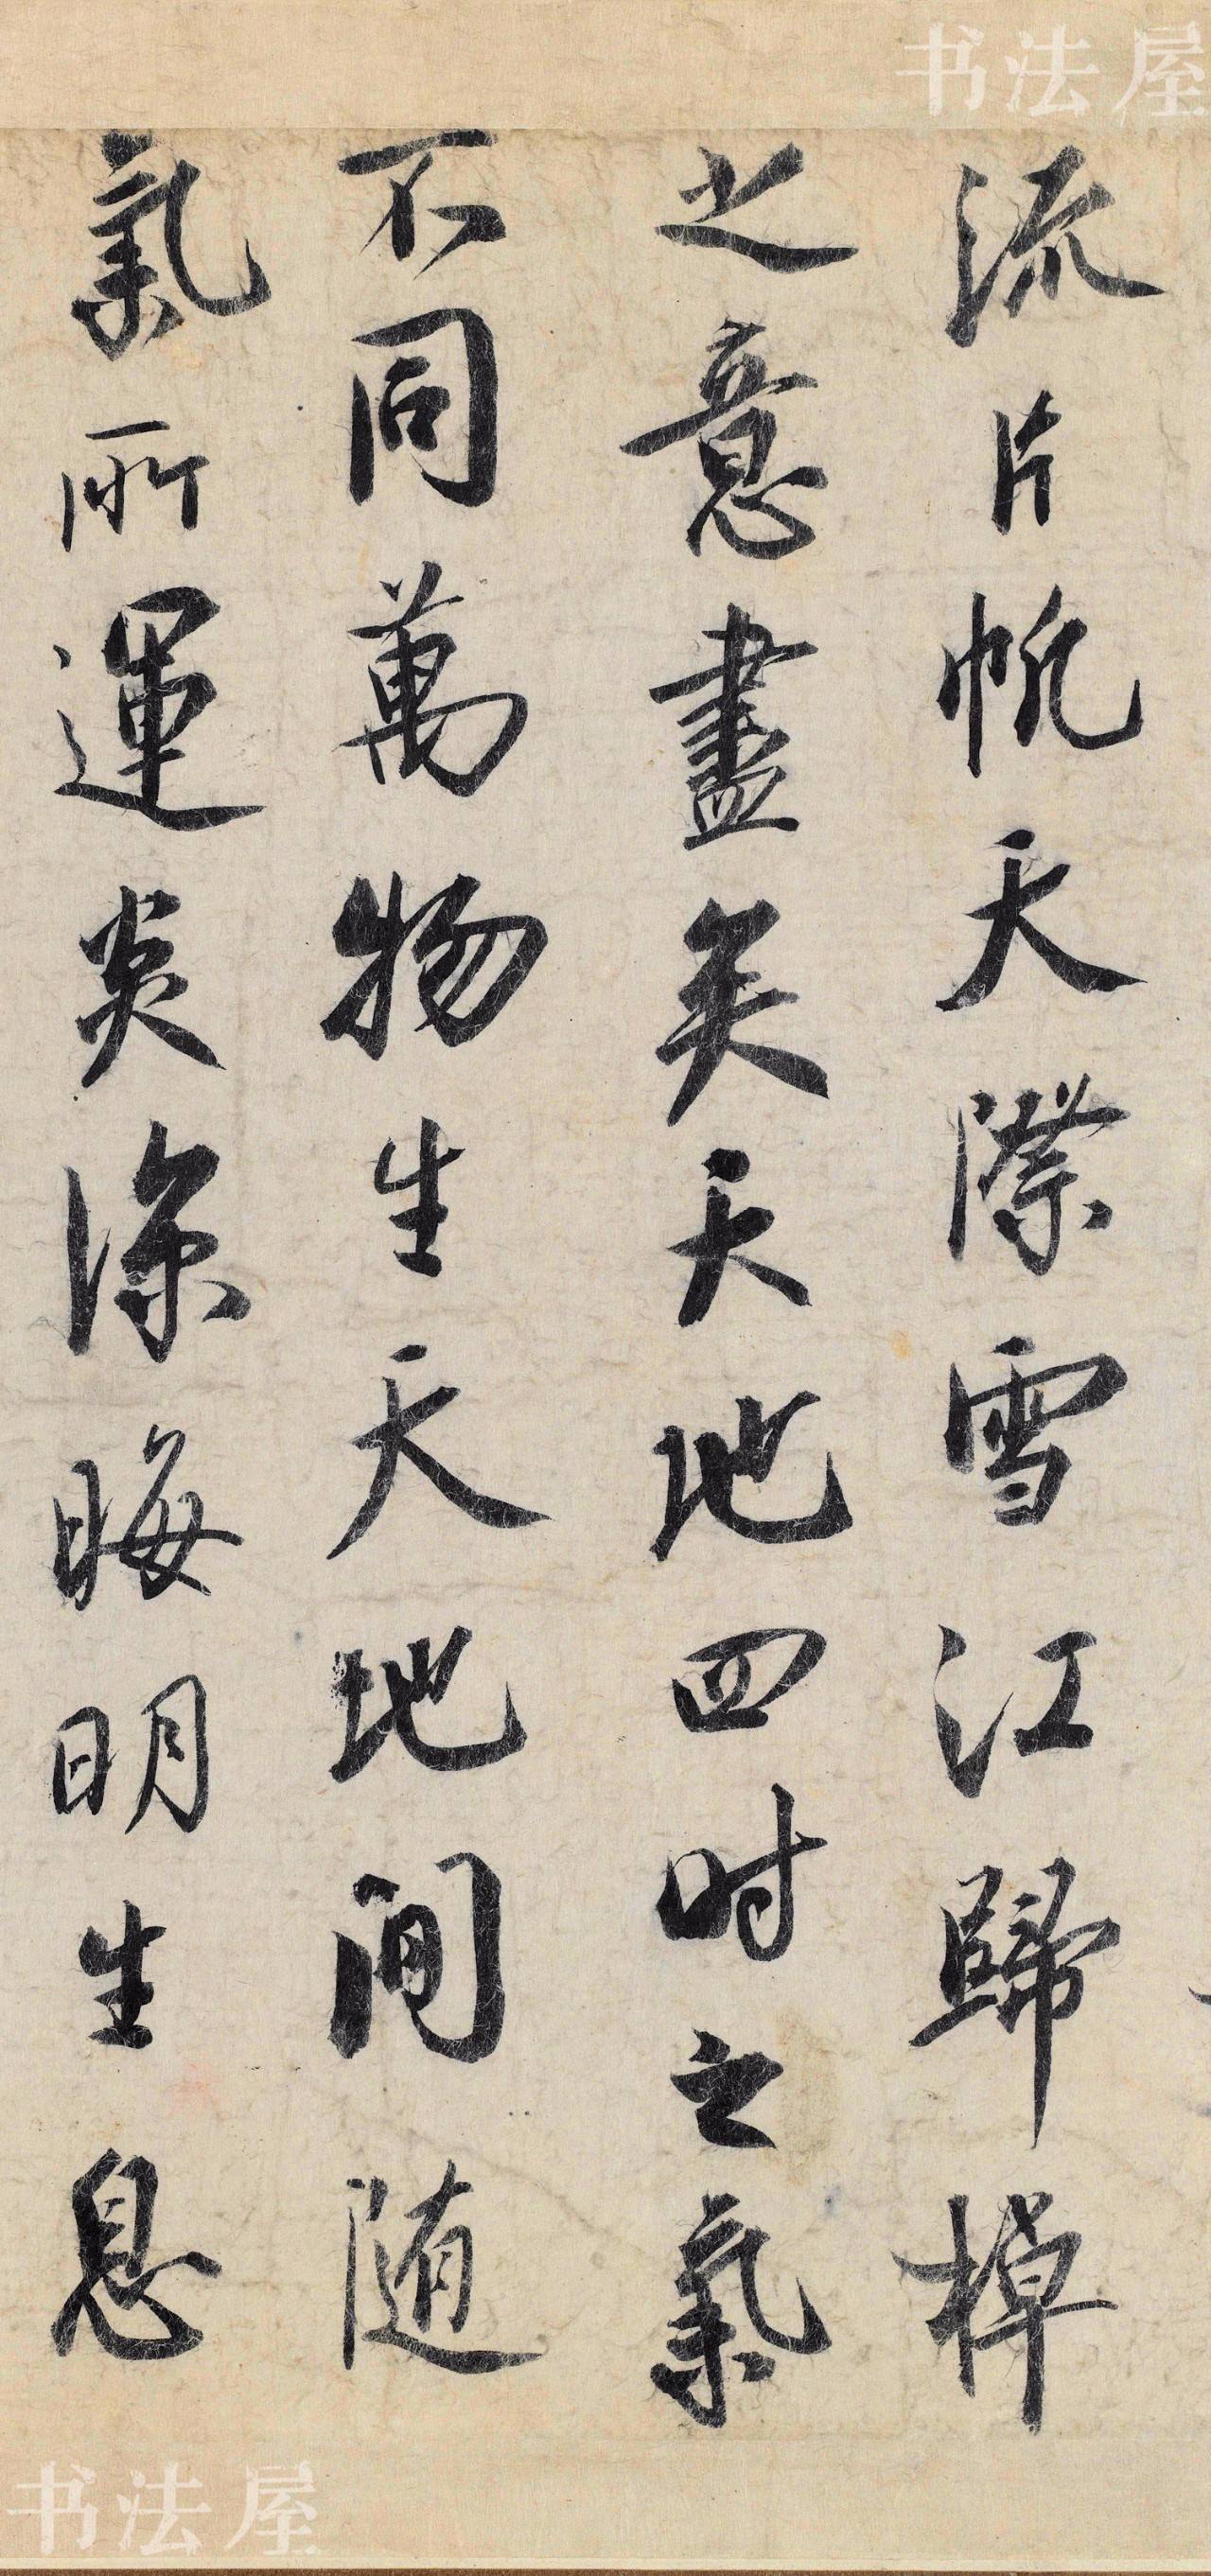 书法屋
流片帆天際雪江歸棹
之意盡矣天地四时之氣
不同萬物生天地间随
氣所運炎涼晦明生息
书法屋